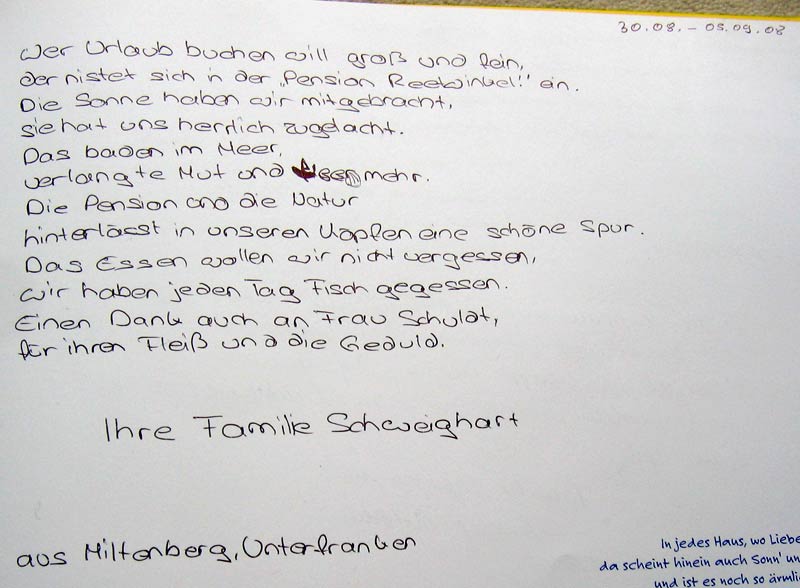 30.08. - 05.09.08
Wer Urlaub buchen will groß und fein,
der nistet sich in der „Pension Reewinkel!" ein.
Die Sonne haben wir mitgebracht,
sie hat uns herrlich zugelacht.
Das baden im Meer,
verlangte Mut und mehr.
Die Pension und die Natur
hinterlässt in unseren Köpfen eine schöne Spur.
Das Essen wollen wir nicht vergessen,
wir haben jeden Tag Fisch gegessen.
Einen Dank auch an Frau Schuldt,
für ihren Fleiß und die Geduld.
Ihre Familie Schweighart
aus Miltenberg, Unterfranken
In jedes Haus, wo Liebe
da scheint hinein auch Sonn' un
und ist es noch so ärmli